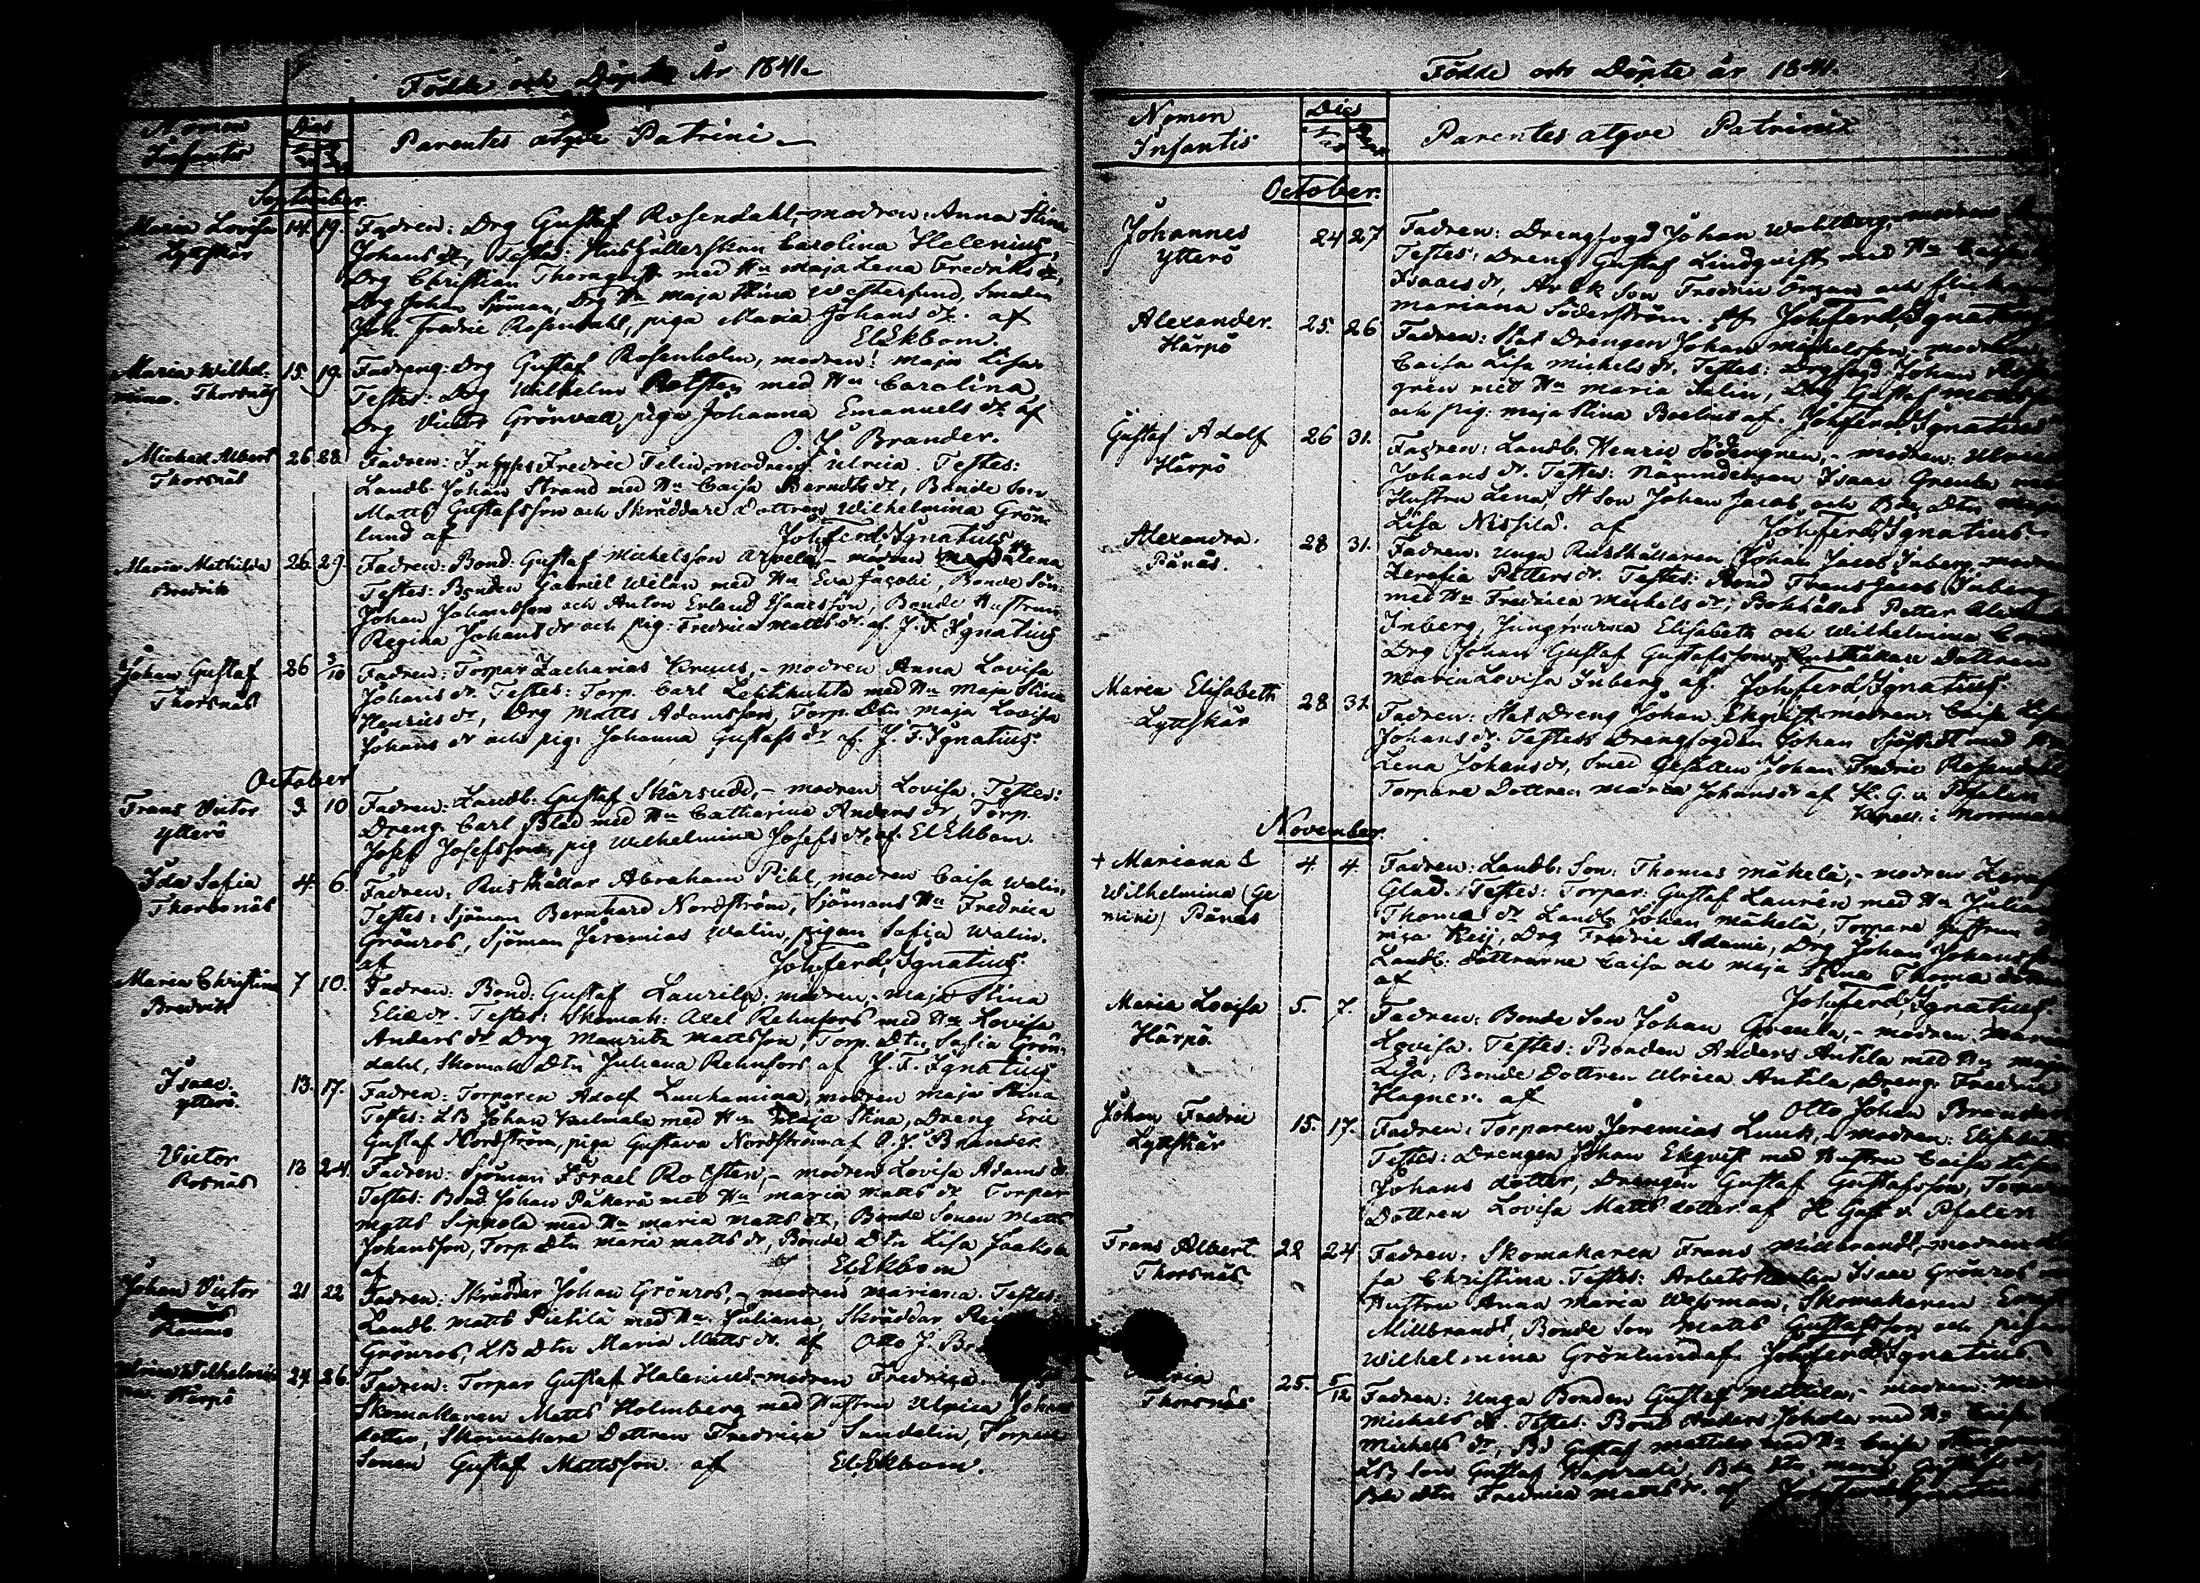 Födde och Döpte År 1841.
Nomen
Infantis
Dies
Parentes atque Patrini
September.
Maria Lovisa 14. 19. Fadren: Drg Gustaf Rosendahl,- modren: Anna Stina
Lyttskär Johans dr, Testes: Hushållerskan Carolina Helenius,
Drg Christian Thornqvist med Hu Maja Lena Fredriks dr,
Drg Johan Sjöman, Drg Hu Maja Stina Westerlund, Smeden
Joh. Fredric Rosendahl, piga Maria Johans dr. af
El Ekbom.
Maria Wilhel- 15. 19. Fadren: Drg Gustaf Rosenholm, modren: Maja Lisa
mina. Thorsnäs Testes: Drg Wilhelm Rolsten med Hu Carolina
Drg Victor Grönvall, piga Johanna Emanuels dr af
O. J. Brander.
Michael Albert 26. 28. Fadren: Fredric Felin, modren Ulrica. Testes:
Thorsnäs Landb. Johan Strand med Hu Caisa Berndts dr, Bonde Son
Matts Gustafsson och Skräddare dottren Wilhelmina Grön-
lund af Joh. Ferd. Ignatius
Maria Mathilda 26. 29. Fadren: Bond: Gustaf Michelsson Arvela, modren Magdalena
Bredvik Testes: Bonden Gabriel Welin med Hu Eva Jacobi, Bonde Son
Johan Johansson och Anton Erland Isaacsson, Bonde Hustrun
Regina Johans dr och pig: Fredrica Matts dr. af J. F. Ignatius
Johan Gustaf 26 3/10 Fadren: Torpar Zacharias Cruus,- modren Anna Lovisa
Thorsnäs Johans dr. Testes: Torp. Carl med Hu Maja Stina
Henrics dr, Drg Matts Adamsson, Torp. Dtr Maja Lovisa
Johans dr och pig: Johanna Gustafs dr af J. F. Ignatius.
October
Frans Victor 3 10 Fadren: Landb: Gustaf Skärsudd,- modren Lovisa. Testes:
Ytterö Dreng Carl Blad med Hu Catharina Anders dr, Torp.
Josef Josefsson, pig Wilhelmina Josefs dr. af El Ekbom.
Ida Sofia 4. 6. Fadren: Rusthållar Abraham Pihl, modren Caisa Walin,
Thorsnäs Testes: Sjöman Bernhard Nordström, Sjömans Hu Fredrica
Grönros, Sjöman Jeremias Walin, pigan Sofia Walin.
af Joh. Ferd. Ignatius.
Maria Christina 7 10. Fadren: Bond: Gustaf Laurila, modren,- Maja Stina
Bredvik Elia dr. Testes: Skomak: Axel Rehnfors med Hu Lovisa
Anders dr Drg Mauritz Mattsson, Torp. Dtr Sofia Grön-
dahl, Skomak Dtr Juliana Rehnfors af J. F. Ignatius
Isaac. 13. 17. Fadren: Torparen Adolf Luuhamina, modren Maja Stina
Ytterö. Testes: LB Johan med Hu Maja Stina, Dreng Eric
Gustaf Nordström, piga Gustava Nordström af O. J. Brander.
Victor 13 24. Fadren: Sjöman Israel Rolsten,- modren Lovisa Adams dr.
Rosnäs Testes: Bond Johan Päkerä med Hu Maria Matts dr Torpar
Matts Sippola med Hu Maria Matts dr, Bonde Sonen Matts
Johansson, Torp. Dtr Maria Matts dr, Bonde Dtr Lisa Jaakola
af El Ekbom
Johan Victor 21 22 Fadren: Skräddar Johan Grönros,- modren Mariana. Testes:
Raumo Landb. Matts Pietilä med Hu Juliana, Skräddar
Grönros, LB Dtr Maria Matts dr. af Otto J.
Wilhelmi- 24. 26. Fadren: Torpar Gustaf Halenius,- modren Fredrica.
na. Härpö Skomakaren Matts Holmberg med Hustru Ulrica Johans
dotter, Skomakare Dottren Fredrica Sundelin, Torpare
Sonen Gustaf Mattsson. af El Ekbom.
Födde och Döpte år 1841.
Nomen
Infantis
Dies
Parentes atque Patrini
October.
Johannes 24 27 Fadren: Drengfogd Johan Wahlberg, modren
Ytterö Testes: Dreng Gustaf Lindqvist med Hu Caisa
Isaacs dr, Arb.k Son Fredric Öman och flickan
Mariana Söderström. Af Joh. Ferd. Ignatius
Alexander. 25. 26 Fadren: Stat Drengen Johan Michelsson,- modren
Härpö Caisa Lisa Michels dr. Testes: Drg fogd Johan
gren med Hu Maria Salin, Drg Gustaf
och pig: Maja Stina Boelius af. Joh. Ferd. Ignatius
Gustaf Adolf 26 31. Fadren: Landb. Henric Södergren,- modren: Ulrica
Härpö Johans dr. Testes: Nämndeman Isaac Greula med
Hustru Lena, St Son Johan Jacob, och Bde Dtr Maja
Lisa Nissilä. af Joh. Ferd. Ignatius.
Alexandra. 28 31. Fadren: Unga Rusthållaren Johan Jacob Inberg,- modren
Pänäs. Serafia Petters dr. Testes: Bond Frans Jacob Inberg
med Hu Fredrica Michels dr, Bokhållar Petter
Inberg, Jungfrurna Elisabeth och Wilhelmina
Drg Johan Gustaf Gustafsson, Rusthållare Dottren
Maria Lovisa Inberg af. Joh. Ferd. Ignatius.
Maria Elisabeth 28 31. Fadren: Stat Dreng Johan Ekqvist modren: Caisa Lisa
Lyttskär Johans dr. Testes: Drengfogden Johan Sjöstedt med Hu
Lena Johans dr, Smed Gesällen Johan Fredric Rosendahl
Torpare Dottren Maria Johans dr af H. G. v. Pfaler
Capell. i Norrmark
November.
+ Mariana & 4. 4. Fadren: Landb: Son: Thomas Mäkelä,- modren
Wilhelmina (Ge Glad. Testes: Torpar: Gustaf Laurén med Hu Juliana
mini) Pänäs Thomas dr Landb Johan Mäkelä, Torpare Hustrun
Keij, Drg Fredric Adamie, Drg Johan Johansson
Landb: döttrarne Caisa och Maja Stina Thomas döttrar
af Joh. Ferd. Ignatius.
Maria Lovisa 5. 7. Fadren: Bonde Son Johan Greula,- modren: Maria
Härpö. Lovisa. Testes: Bonden Anders Antila med Hu Maja
Lisa, Bonde Dottren Ulrica Antila, Dreng Fredric
Hagner. af Otto Johan Brander
Johan Fredric 15. 17. Fadren: Torparen Jeremias Luuk,- modren: Elisabeth
Lyttskär Testes: Drengen Johan Ekqvist med Hustru Caisa Lisa
Johans dotter, Drengen Gustaf Gustafsson, Torpare
Dottren Lovisa Matts dotter af H. Gust v. Pfaler
Frans Albert 22 24. Fadren: Skomakaren Frans Millbrandt,- modren
Thorsnäs. sa Christina. Testes: Arbetskarlen Isaac Grönros med
Hustru Anna Maria Wessman, Skomakaren
Millbrandt, Bonde Son Matts Gustafsson och pigan
Wilhelmina Grönlund af Joh. Ferd. Ignatius.
25. 5/12 Fadren: Unga Bonden Gustaf Mattila,- modren: Maria
Thorsnäs Michels dr. Testes: Bond Anders Johola med Hu Caisa
Michels dr, Bd Gustaf Mattila med Hu Caisa
LB Son Gustaf Haprati, Bde Dtr, Maria Gustafs dr,
Bde dtr Fredrica Matts dr. af Joh. Ferd. Ignatius